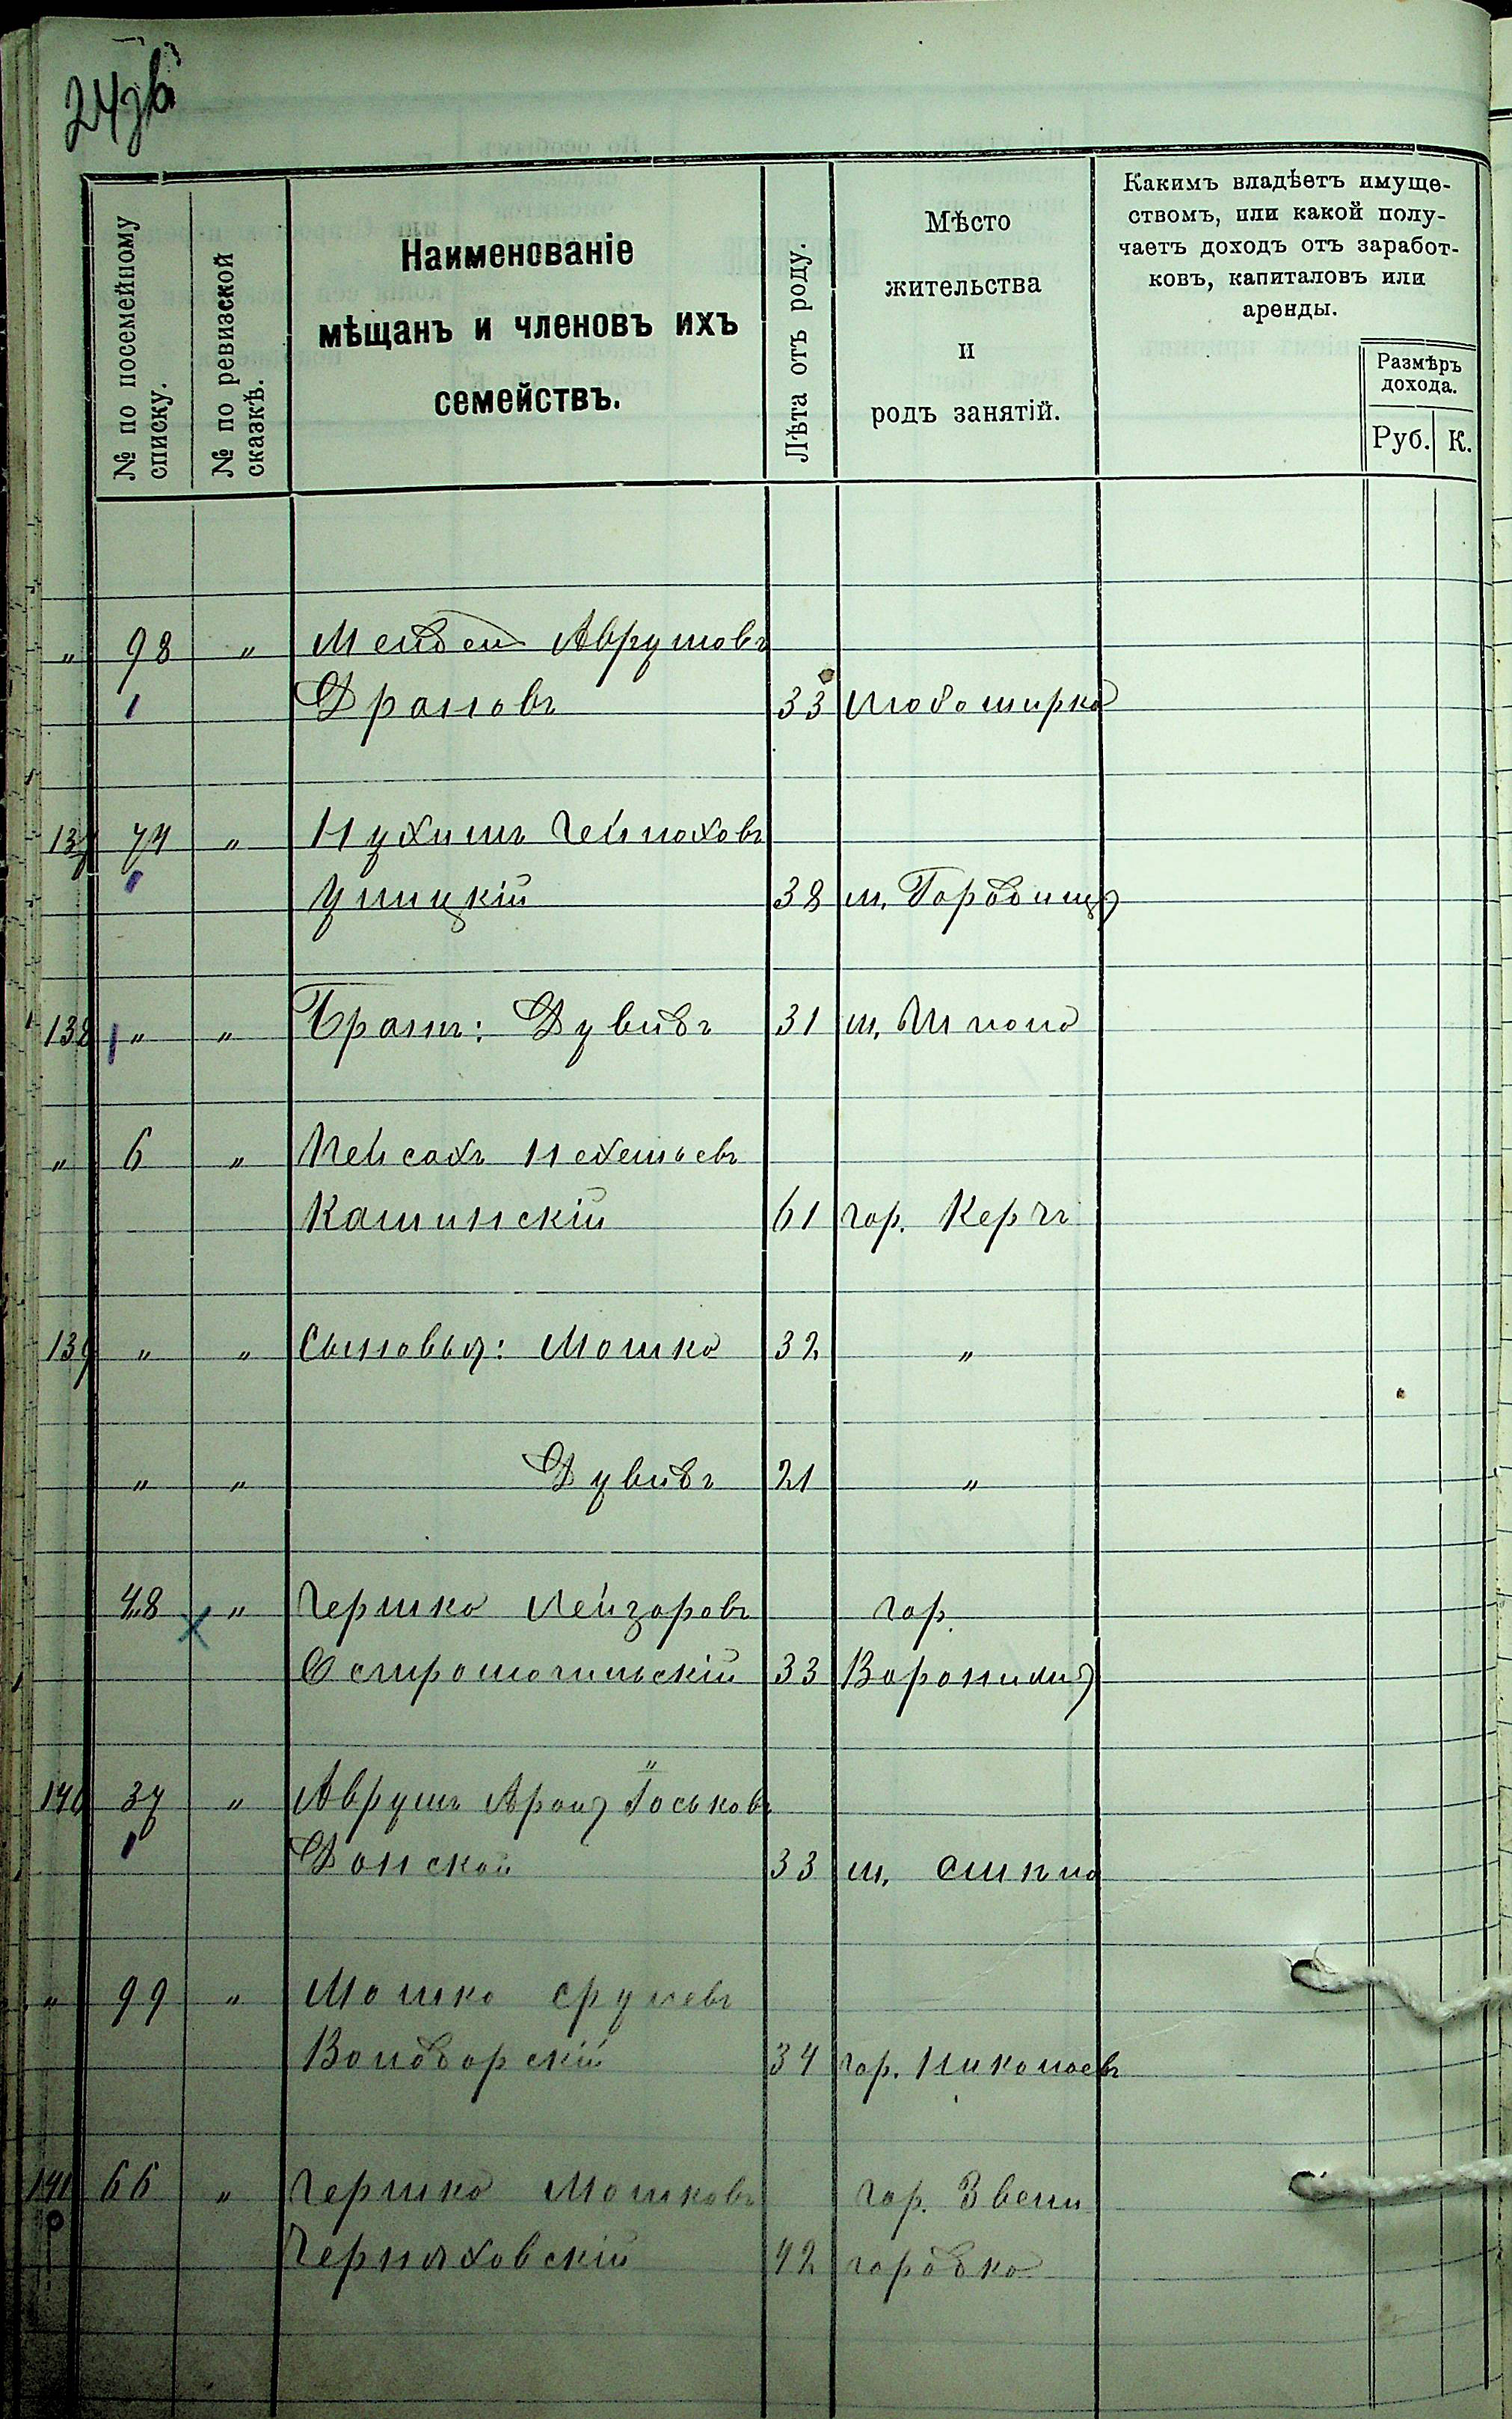 № по посемейному списку.
№ по ревизской сказкѣ.
Наименованіе
мѣщанъ и членовъ ихъ
семействъ.
Лѣта отъ роду.
Мѣсто
жительства
и
родъ занятій.
Какимъ владѣетъ имуще-
ствомъ, или какой полу-
чаетъ доходъ отъ заработ-
ковъ, капиталовъ или
аренды.
Размѣръ
дохода.
Руб. К.
" 98 " Мендель Аврумовъ
Драновъ 33
137 74 " Нухимъ Гейнохов
Улицкій 38 м. Городища
138 " " Братъ: Дувидъ 31 м. Шпола
" 6 " Пейсахъ Нехемьевъ
Каминскій 61 гор. Керчь
139 " " Сыновья: Мошко 32 "
" " Дувидъ 21 "
48 " Гершко Лейзоровъ гор.
Остромогильскій 33
140 37 " Аврумъ Аронъ Іоськовъ
Донской 33 м. Смѣла
" 99 " Мошко Срулевъ
34 гор. Николаевъ
141 66 " Гершко Мошковъ гор. Звени
Черняховскій 42 городка